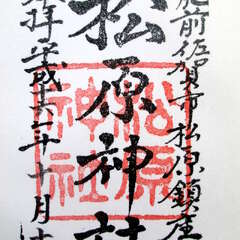 肥前佐賀市松原鎮座
松原神社
松原
神社
拝平成六年十月